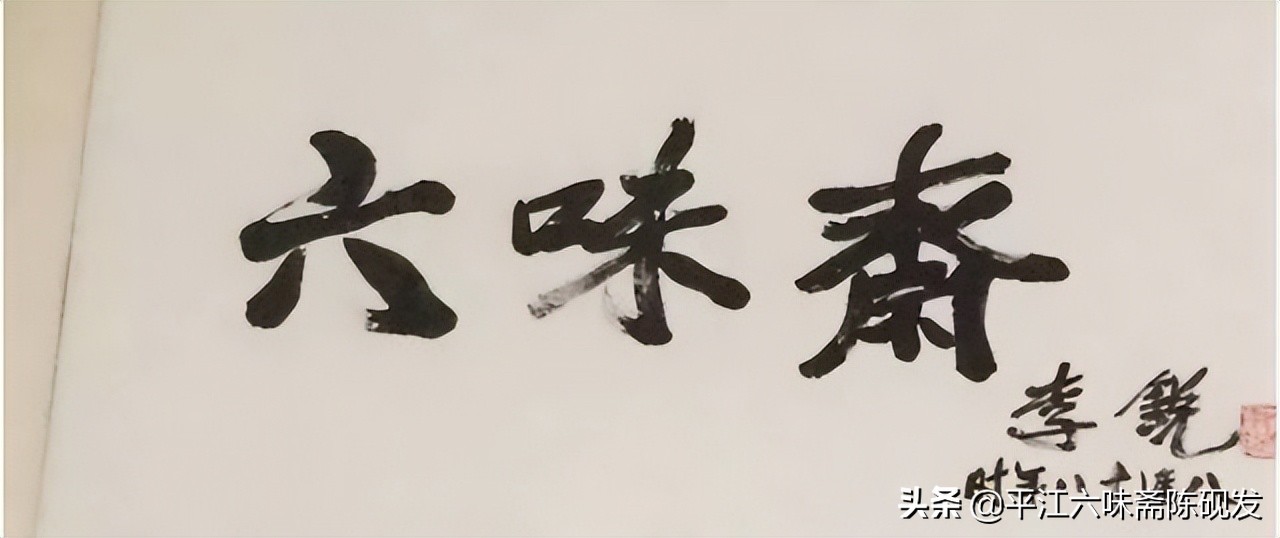 六味斋
李锐
时年八十八
头条@平江六味斋陈砚发